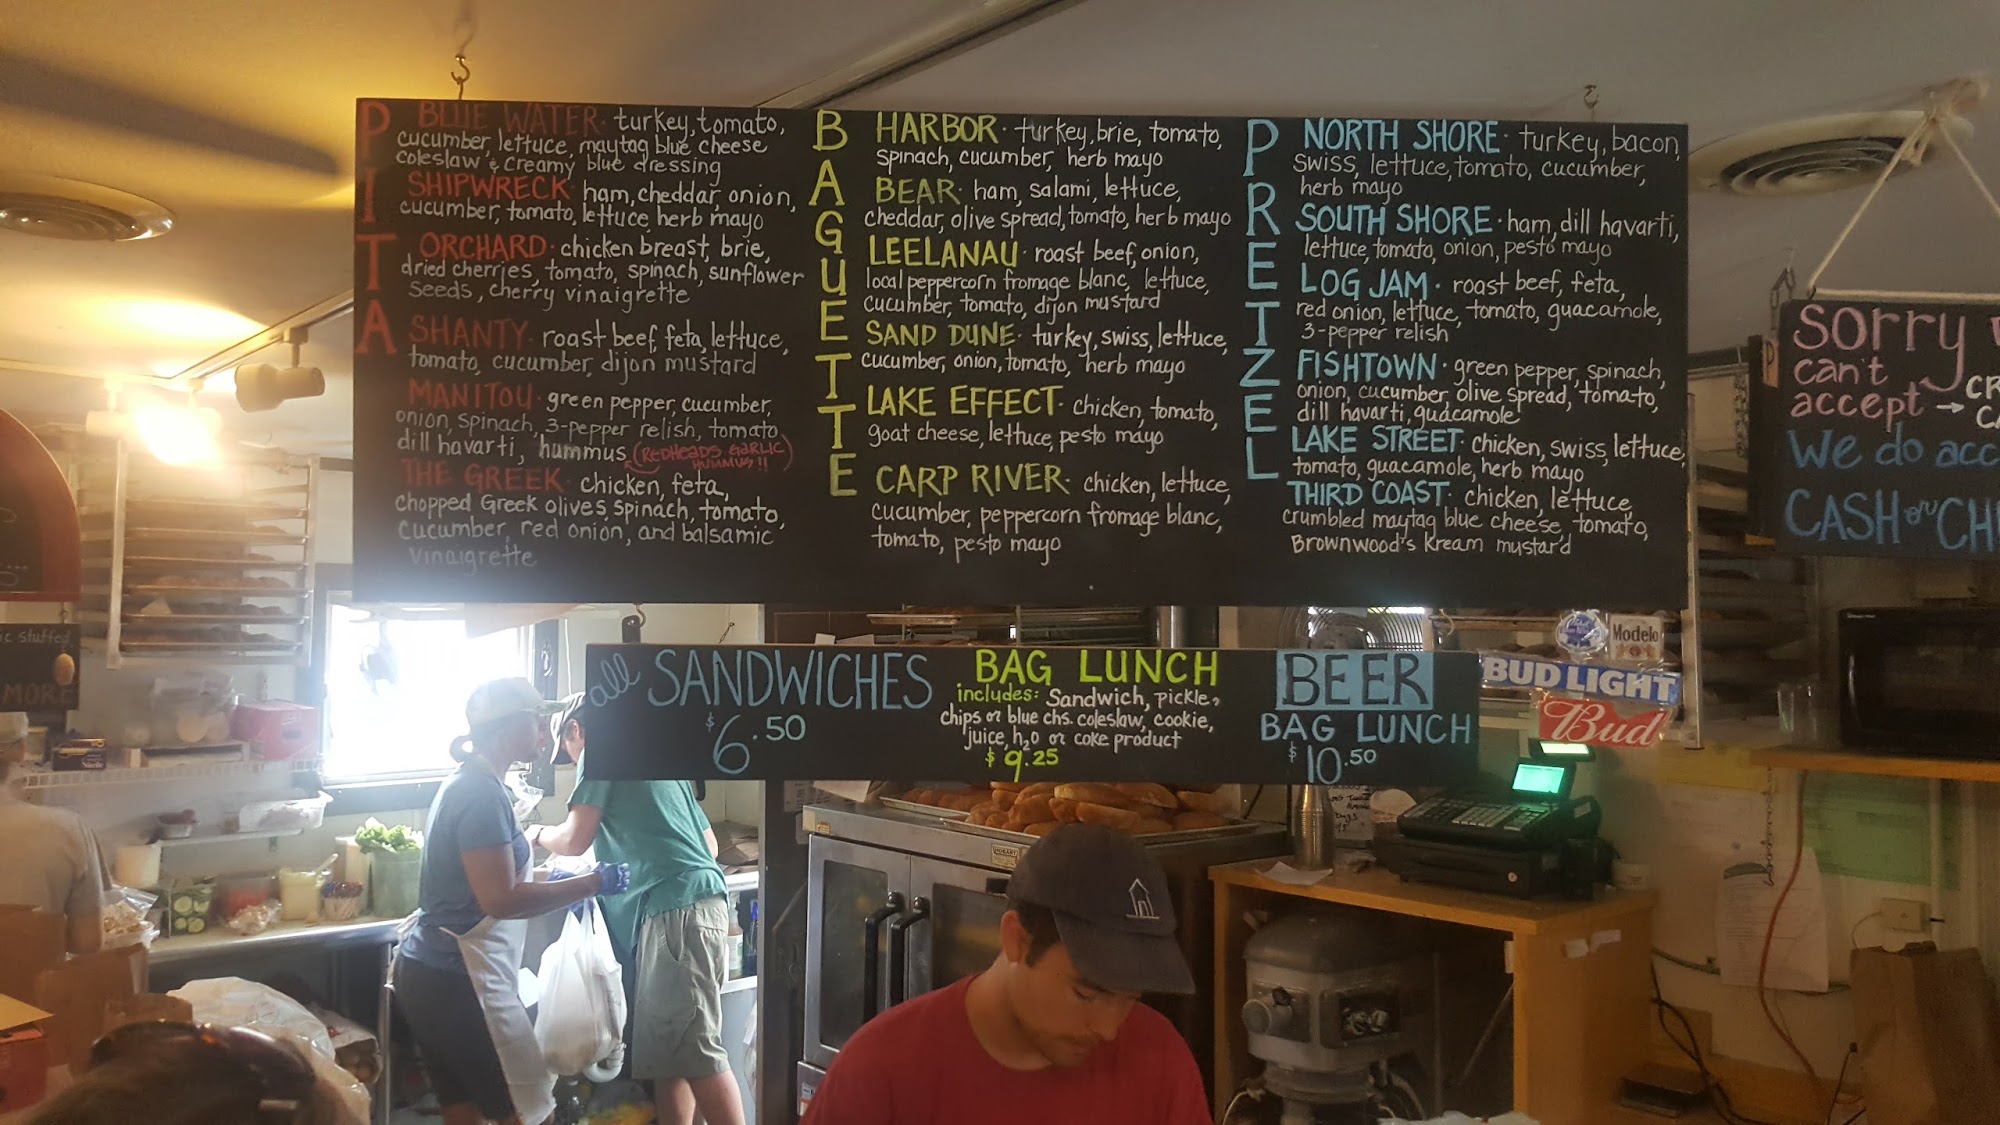 PITA
BLUE WATER · turkey, tomato,
cucumber, lettuce, maytag blue cheese
coleslaw & creamy blue dressing
SHIPWRECK · ham, cheddar, onion,
cucumber, tomato, lettuce, herb mayo
ORCHARD · chicken breast, brie,
dried cherries, tomato, spinach, sunflower
seeds, cherry vinaigrette
SHANTY · roast beef, feta, lettuce,
tomato, cucumber, dijon mustard
MANITOU · green pepper, cucumber,
onion, spinach, 3-pepper relish, tomato,
dill havarti, hummus (REDHEADS GARLIC
HUMMUS!!)
THE GREEK · chicken, feta,
chopped Greek olives, spinach, tomato,
cucumber, red onion, and balsamic
vinaigrette
BAGUETTE
HARBOR · turkey, brie, tomato,
spinach, cucumber, herb mayo
BEAR · ham, salami, lettuce,
cheddar, olive spread, tomato, herb mayo
LEELANAU · roast beef, onion,
local peppercorn fromage blanc, lettuce,
cucumber, tomato, dijon mustard
SAND DUNE · turkey, swiss, lettuce,
cucumber, onion, tomato, herb mayo
LAKE EFFECT · chicken, tomato,
goat cheese, lettuce, pesto mayo
CARP RIVER · chicken, lettuce,
cucumber, peppercorn fromage blanc,
tomato, pesto mayo
PRETZEL
NORTH SHORE · turkey, bacon,
swiss, lettuce, tomato, cucumber,
herb mayo
SOUTH SHORE · ham, dill havarti,
lettuce, tomato, onion, pesto mayo
LOG JAM · roast beef, feta,
red onion, lettuce, tomato, guacamole,
3-pepper relish
FISHTOWN · green pepper, spinach,
onion, cucumber, olive spread, tomato,
dill havarti, guacamole
LAKE STREET · chicken, swiss, lettuce,
tomato, guacamole, herb mayo
THIRD COAST · chicken, lettuce,
crumbled maytag blue cheese, tomato,
Brownwood's Kream mustard
sorry
can't
accept → CR
We do acc
CASH or CH
stuffed
MORE
all SANDWICHES
$6.50
BAG LUNCH
includes: Sandwich, pickle,
chips or blue chs. coleslaw, cookie,
juice, h2o or coke product
$9.25
BEER
BAG LUNCH
$10.50
Modelo
BUD LIGHT
Bud
HOBART